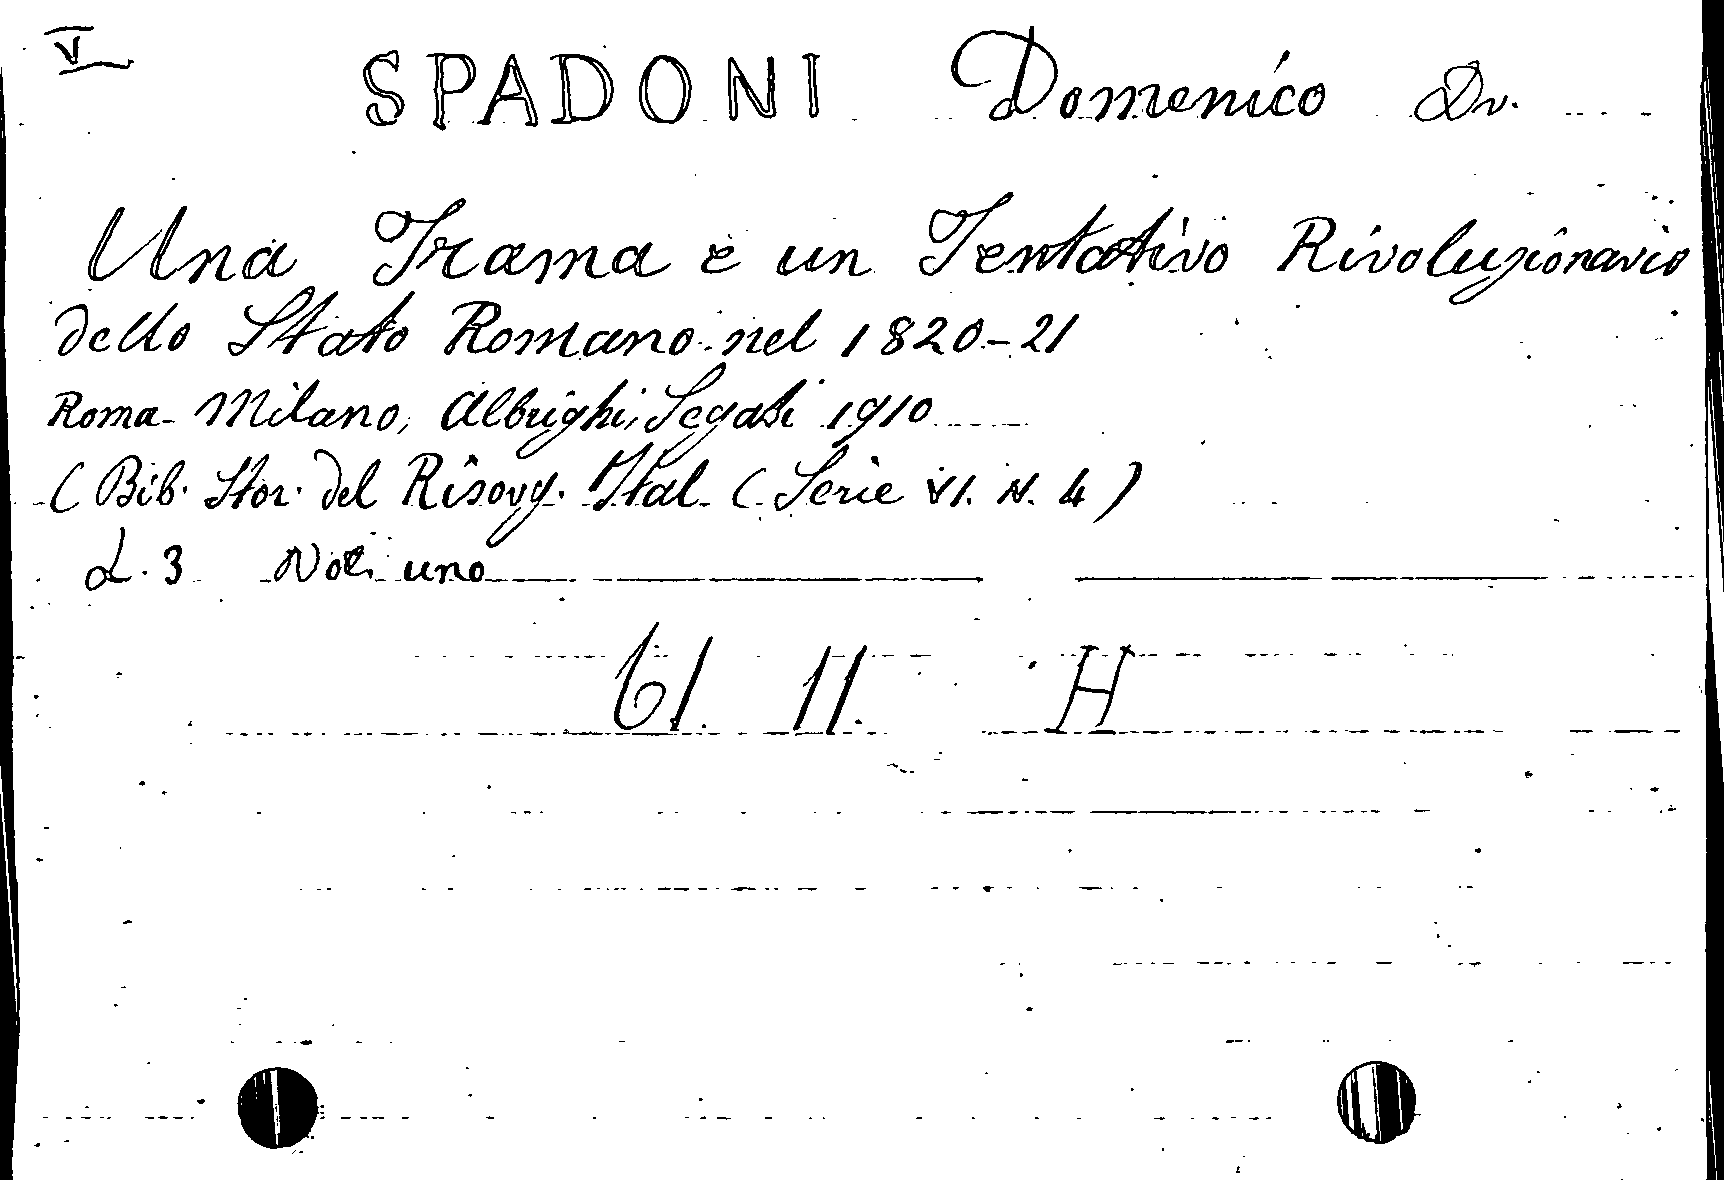 V
SPADONI Domenico Dr.
Una Trama e un Tentativo Rivoluzionario
dello Stato Romano nel 1820-21
Roma-Milano, Albrighi, Segati 1910
(Bib. Stor. del Risorg. Ital. (Serie VI. N. 4)
L. 3 Vol. uno
61. 11. H